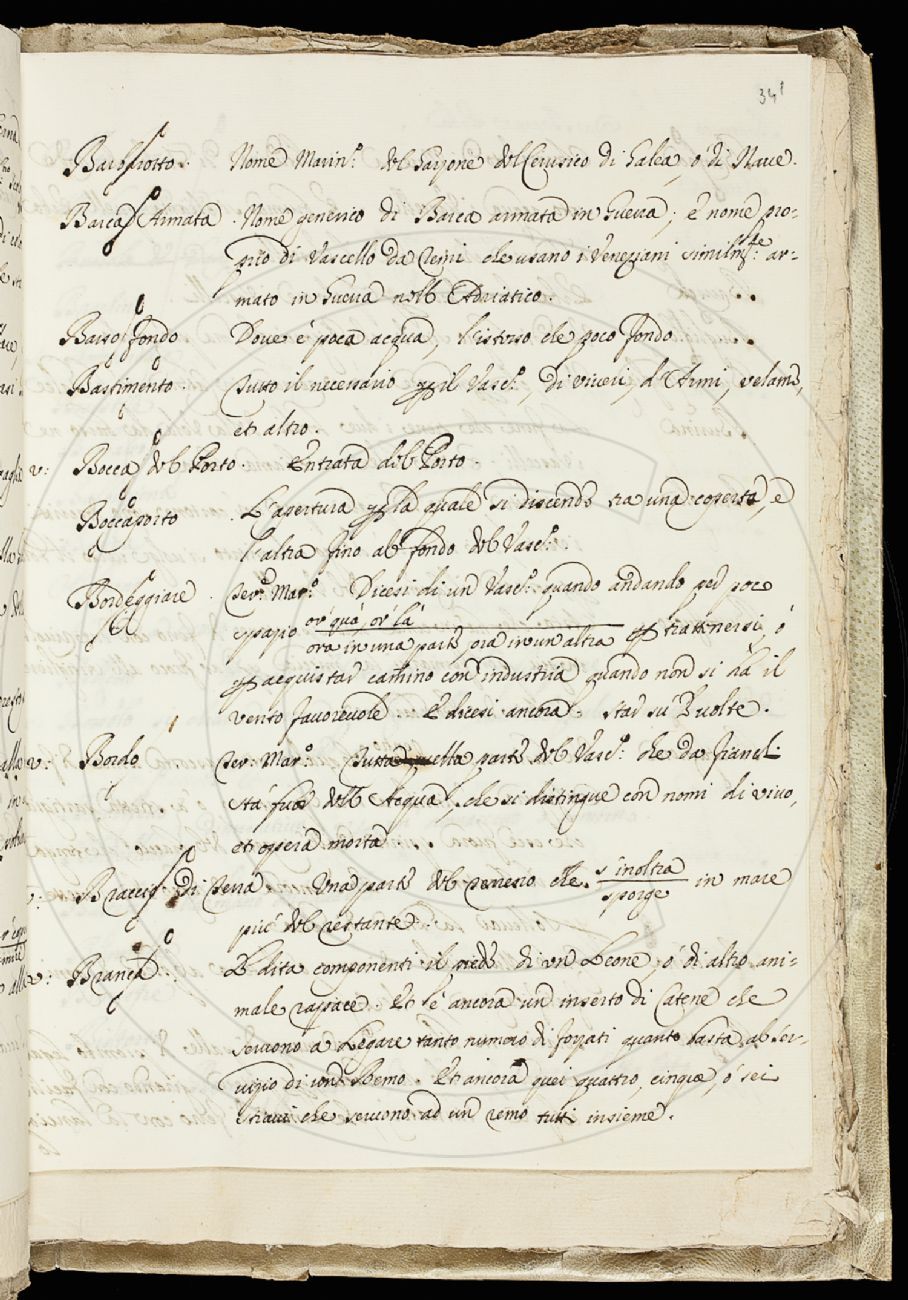 341
Barbarotto. Nome Marin.º del Garzone del Cerusico di Galea, ò di Naue.
Barca Armata. Nome generico di Barca armata in Guerra; è nome pro-
prio di Vascello da Remi che usano i Veneziani similm.te ar-
mato in Guerra nell' Adriatico.
Basso fondo Doue è poca acqua, l'istesso che poco fondo.
Bastimento. Tutto il necessario per il Vasc.º, di viueri, d'Armi, velame,
et altro.
v: Bocca del Porto. Entrata del Porto.
Boccaporto. L'apertura per la quale si discende tra una coperta, e
l'altra fino al fondo del Vasc.º.
Bordeggiare. Ter.º Mar.º Dicesi di un Vasc.º quando andando per poco
or quà, or là
spazio ora in una parte ora in un altra per trattenersi, ó
per acquistar camino con industria quando non si hà il
vento fauoreuole. E dicesi ancora. Star su l' volte.
v: Bordo Ter: Mar.º Tutta quella parte del Vasc.º che da fianchi
stà fuor dell' Acqua, che si distingue con nomi di viuo,
et opera morta
v: Braccio di Terra. Una parte del terreno che s'inoltra in mare
sporge
più del restante.
v: Branca. Le dita componenti il piede di un Leone, ò di altro ani-
male rapace. Et è ancora un inserto di Catene che
seruono à Legare tanto numero di forzati quanto basta al ser-
uigio di un Remo. Et ancora quei quattro, cinque, o sei
schiaui che seruono ad un remo tutti insieme.